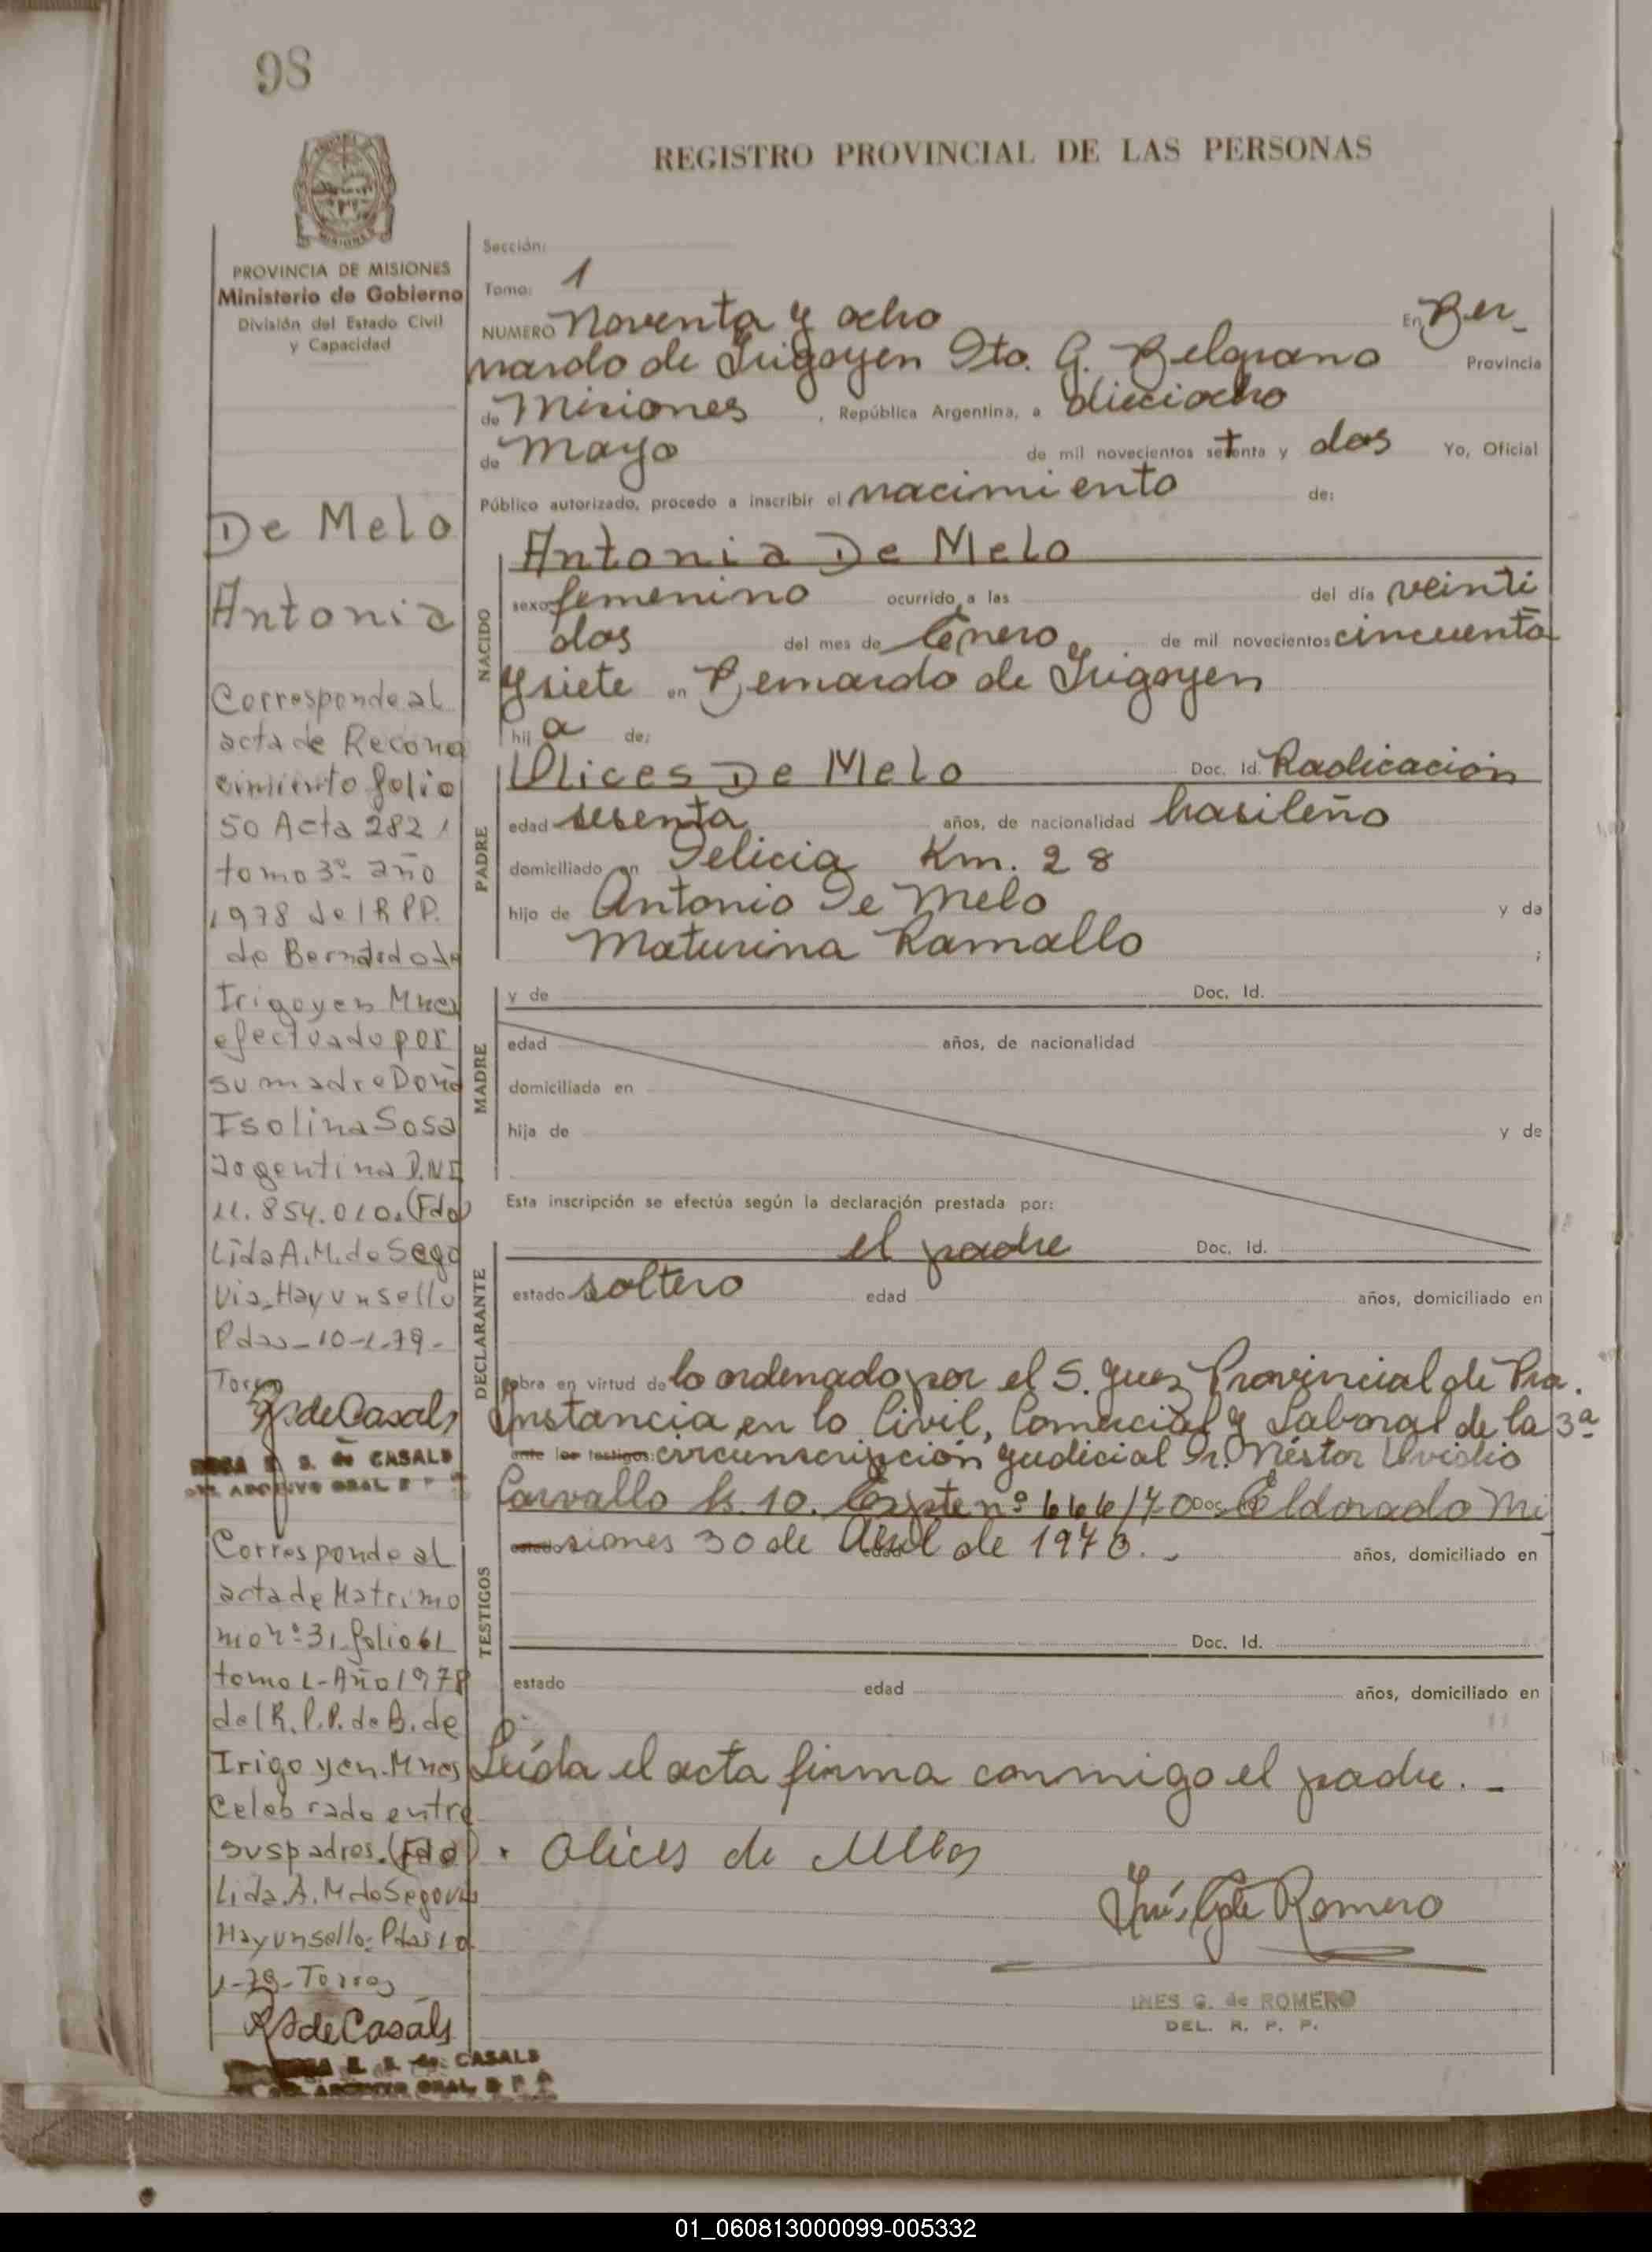 98
REGISTRO PROVINCIAL DE LAS PERSONAS
MISIONES
PROVINCIA DE MISIONES
Ministerio de Gobierno
División del Estado Civil
y Capacidad
De Melo
Antonia
Corresponde al
acta de Recono
cimiento folio
50 Acta 282
tomo 3º año
1978 del R P.P.
de Bernardo de
Irigoyen Mnes
efectuado por
su madre Doña
Isolina Sosa
argentina D.N.I
11.854.010. (Fdo)
Lida A. M. de Sego
via. Hay un sello
Pdas-10-1-79-
Torres
R S de Casals
ROSA E. S. de CASALS
ARCHIVO GRAL R P P
Corresponde al
acta de Matrimo
nio nº 31 folio 61
tomo 1-Año 1978
del R.P.P. de B. de
Irigoyen-Mnes
Celebrado entre
sus padres. (Fdo)
Lida A. M de Segovia
Hay un sello: Pdas 10
1-79-Torres
R S de Casals
E. S. de CASALS
ARCHIVO GRAL. R P P
Sección:
Tomo: 1
NUMERO Noventa y ocho En Ber-
nardo de Irigoyen Dto. G. Belgrano Provincia
de Misiones , República Argentina, a dieciocho
de Mayo de mil novecientos setenta y dos Yo, Oficial
Público autorizado, procedo a inscribir el nacimiento de:
NACIDO
Antonia De Melo
sexo femenino ocurrido a las del día veinti
dos del mes de Enero de mil novecientos cincuenta
y siete en Bernardo de Irigoyen
hij a de:
PADRE
Olices De Melo Doc. Id. Radicación
edad sesenta años, de nacionalidad brasileño
domiciliado en Delicia Km. 28
hijo de Antonio De Melo y de
Maturina Ramallo ;
MADRE
y de Doc. Id.
edad años, de nacionalidad
domiciliada en
hija de y de
Esta inscripción se efectúa según la declaración prestada por:
DECLARANTE
el padre Doc. Id.
estado soltero edad años, domiciliado en
obra en virtud de lo ordenado por el S. Juez Provincial de Pra.
Instancia en lo Civil, Comercial y Laboral de la 3ª
ante los testigos: circunscripción Judicial Dr. Néstor Ovidio
TESTIGOS
Carvallo fs. 10. Expte nº 666/70 Doc. Id. Eldorado Mi
estado siones 30 de Abril de 1970.- edad años, domiciliado en
Doc. Id.
estado edad años, domiciliado en
Leída el acta firma conmigo el padre.-
Olices de Mello
Inés Romero
INES G. de ROMERO
DEL. R. P. P.
01_060813000099-005332